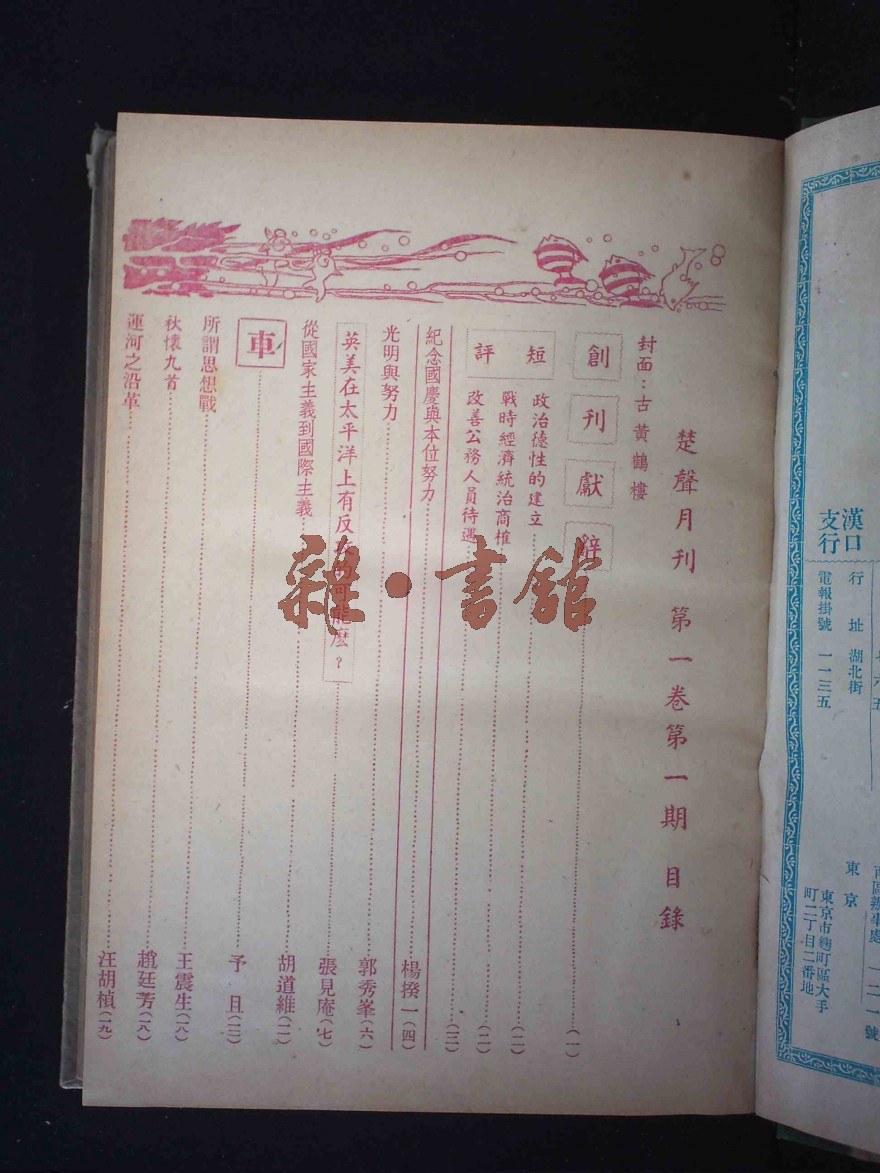 楚聲月刊 第一卷第一期 目錄
封面：古黃鶴樓
創刊獻辭（一）
短評
政治德性的建立（二）
戰時經濟統治商榷（二）
改善公務人員待遇（三）
紀念國慶與本位努力 楊揆一（四）
光明與努力 郭秀峯（六）
英美在太平洋上有反攻的可能麽？ 張見庵（七）
從國家主義到國際主義 胡道維（一一）
車 予且（一三）
所謂思想戰 王震生（一八）
秋懷九首 趙廷芳（一八）
運河之沿革 汪胡楨（一九）
雜·書館
漢口
支行
行址 湖北街
電報掛號 一一三五
東京
東京市麴町區大手
町一丁目二番地